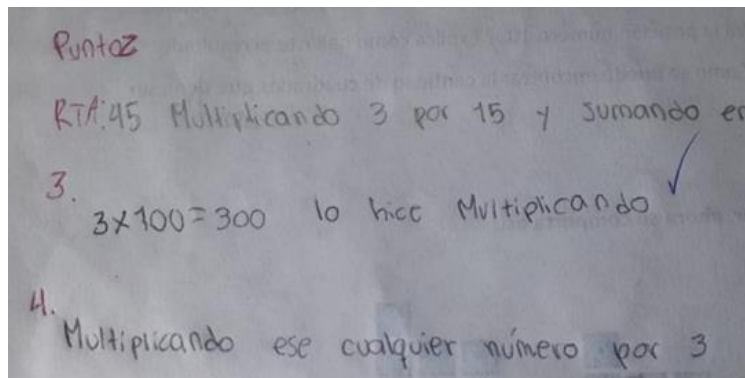 Punto2
RTA:45 Multiplicando 3 por 15 y sumando en
3.
3x100=300 lo hice Multiplicando
4.
Multiplicando ese cualquier número por 3